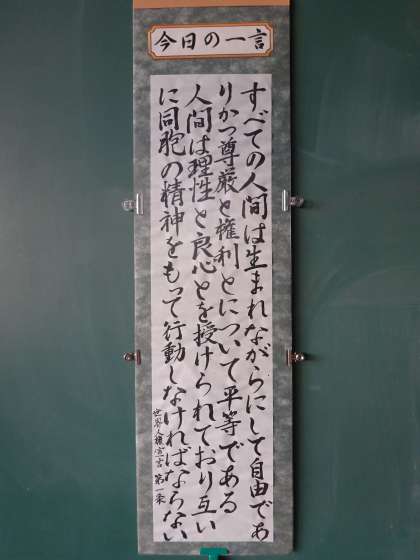 今日の一言
すべての人間は生まれながらにして自由であ
りかつ尊厳と権利とについて平等である
人間は理性と良心とを授けられており互い
に同胞の精神をもって行動しなければならない
世界人権宣言 第一条